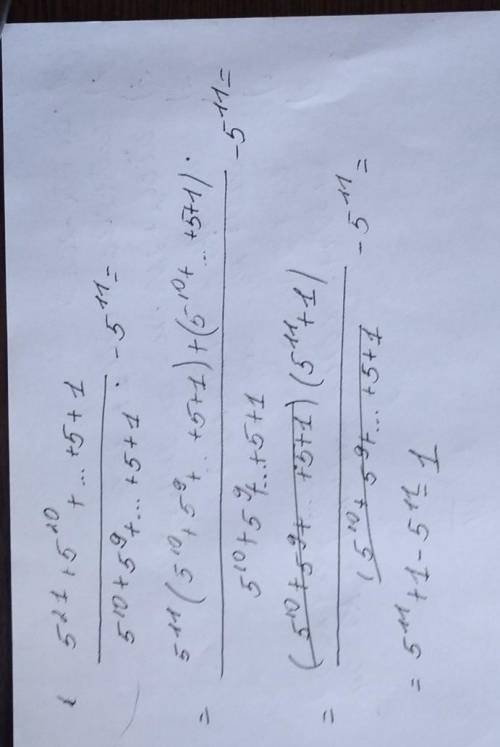 5¹¹ + 5¹⁰ + ... + 5 + 1
5¹⁰ + 5⁹ + ... + 5 + 1 - 5¹¹ =
5¹¹ (5¹⁰ + 5⁹ + ... + 5 + 1) + (5¹⁰ + ... + 5 + 1)
= - 5¹¹ =
5¹⁰ + 5⁹ + ... + 5 + 1
(5¹⁰ + 5⁹ + ... + 5 + 1) (5¹¹ + 1)
= - 5¹¹ =
(5¹⁰ + 5⁹ + ... + 5 + 1
= 5¹¹ + 1 - 5¹¹ = 1